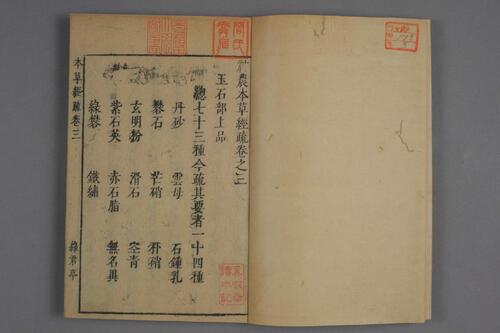 農本草經疏卷之三
玉石部上品
總七十三種今疏其要者一十四種
丹砂 雲母 石鍾乳
礬石 芒硝 朴硝
玄明粉 滑石 空青
紫石英 赤石脂 無名異
綠礬 鐵鏽
本草經疏卷三 綠君亭